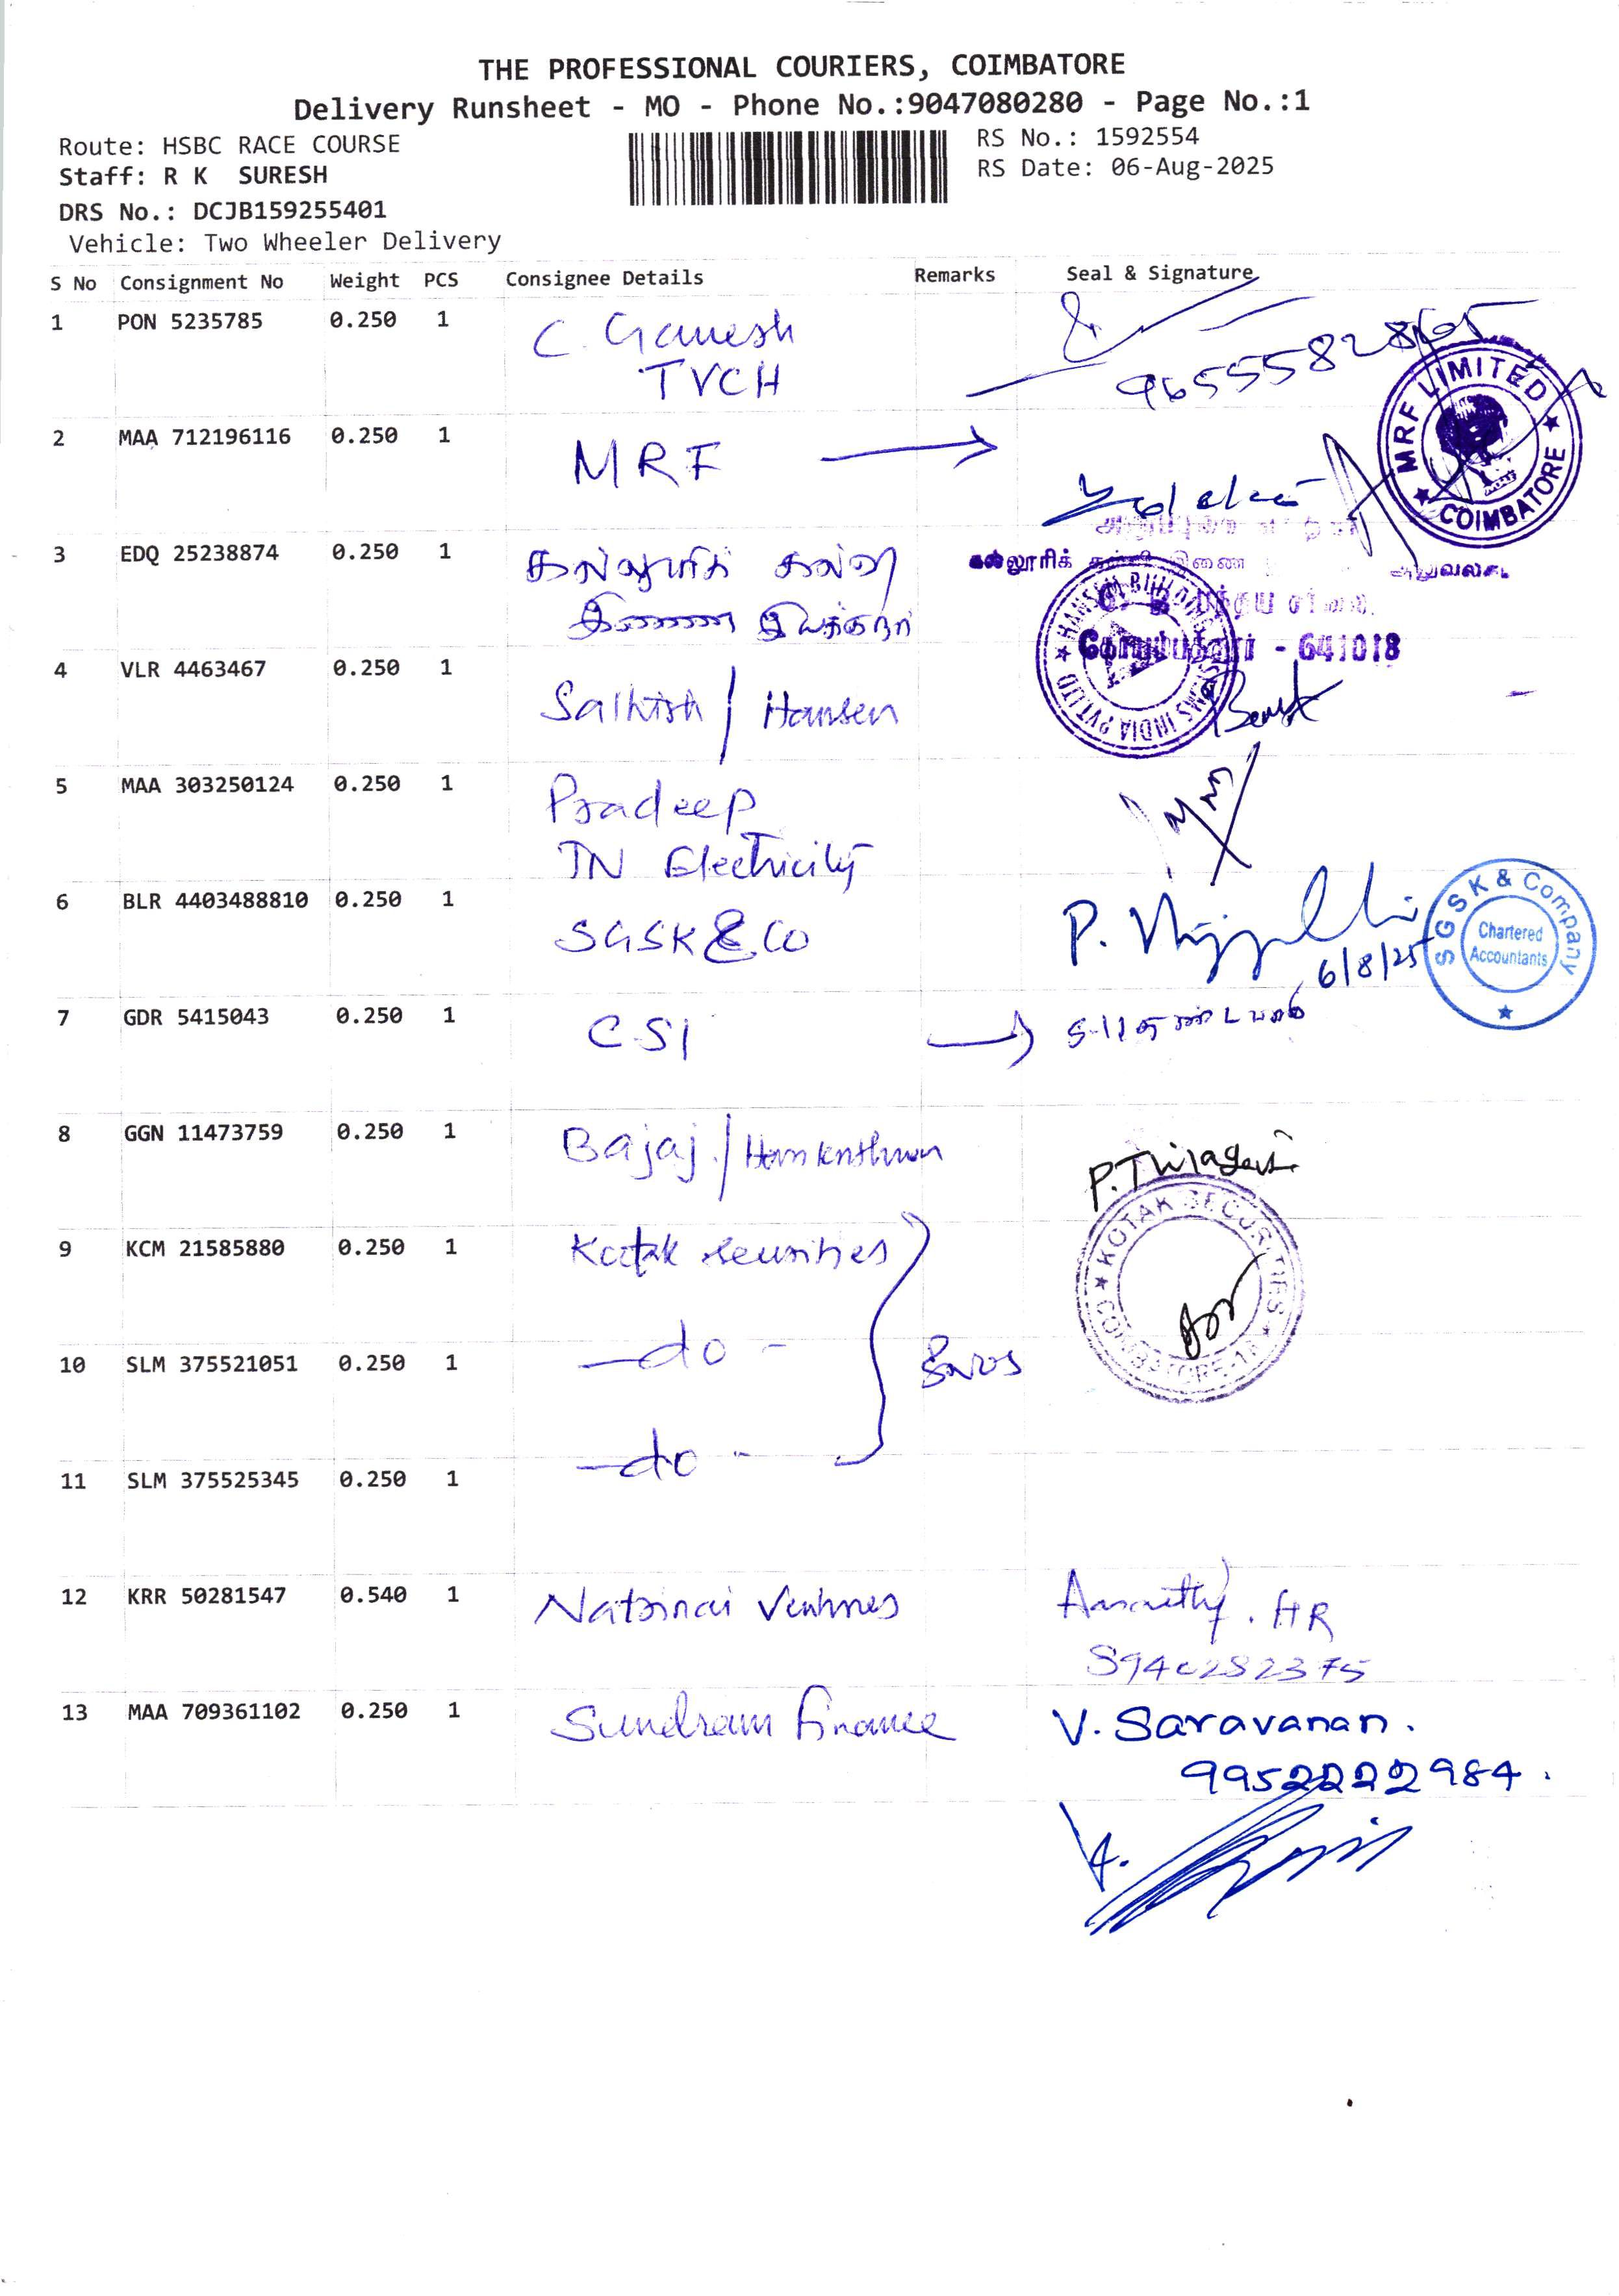 THE PROFESSIONAL COURIERS, COIMBATORE
Delivery Runsheet - MO - Phone No.:9047080280 - Page No.:1
Route: HSBC RACE COURSE
RS No.: 1592554
Staff: R K SURESH
RS Date: 06-Aug-2025
DRS No.: DCJB159255401
Vehicle: Two Wheeler Delivery
S No Consignment No Weight PCS Consignee Details Remarks Seal & Signature
1 PON 5235785 0.250 1 C. Ganesh
TVCH
MRF LIMITED
COIMBATORE
2 MAA 712196116 0.250 1 MRF
3 EDQ 25238874 0.250 1 கல்லூரிக் கல்வி
இணை இயக்குநர்
கல்லூரிக் இணை
கோயம்புத்தூர் - 641018
4 VLR 4463467 0.250 1 Sathish / Hansen
5 MAA 303250124 0.250 1 Pradeep
TN Electricity
6 BLR 4403488810 0.250 1 SGSK & Co
6/8/25
SGSK & Company
Chartered
Accountants
7 GDR 5415043 0.250 1 CSI
8 GGN 11473759 0.250 1 Bajaj /
9 KCM 21585880 0.250 1 Kotak Securities
KOTAK SECURITIES
COIMBATORE-18
10 SLM 375521051 0.250 1 -do-
11 SLM 375525345 0.250 1 -do-
12 KRR 50281547 0.540 1 Natrinai Ventures
HR
8940282375
13 MAA 709361102 0.250 1 Sundram Finance V. Saravanan.
9952222984.